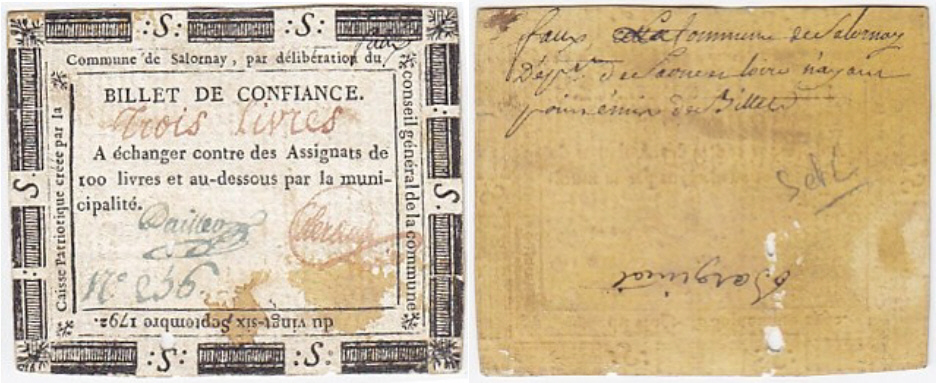 :S: :S:
faux
Commune de Salornay, par délibération du
conseil général de la commune
du vingt-six Septembre 1792.
Caisse Patriotique créée par la
S. S.
BILLET DE CONFIANCE.
Trois livres
A échanger contre des Assignats de
100 livres et au-dessous par la muni-
cipalité.
N° 256.
:S: :S:
faux la Commune de Salornay
Dép.t de Saone en loire n'ayant
point émis de Billets